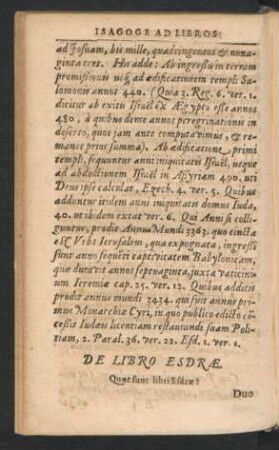 ISAGOGE AD LIBROS:
ad Josuam, bis mille, quadringentos & nona-
ginta tres. His adde: Ab ingressu in terram
promissionis usq; ad ædificationem templi Sa-
lomonis annos 440. (Quia 3. Reg. 6. ver. 1.
dicitur ab exitu Israël ex Ægypto esse annos
480, à quibus deme annos peregrinationis in
deserto, quos jam ante computavimus, & re-
manet prior summa). Ab ædificatione, primi
templi, sequuntur anni iniquitatis Israël, usque
ad abductionem Israël in Assyriam 490. uti
Deus ipse calculat, Ezech. 4. ver. 5. Quibus
adduntur iridem anni iniquitatis domus Iuda,
40. ut ibidem extat ver. 6. Qui Anni si colli-
guntur, prodit Annus Mundi 3363. quo cincta
est Urbs Ierusalem, qua expugnata, ingressi
sunt anno sequēti captivitatem Babylonicam,
quæ duravit annos septuaginta, juxta vaticini-
um Ieremiæ cap. 25. ver. 12. Quibus additis
prodit annus mundi 3434. qui fuit annus pri-
mus Monarchiæ Cyri, in quo publico edicto cō-
cessit Iudæis licentiam restaurandi suam Poli-
tiam, 2. Paral. 36. ver. 22. Esd. 1. ver. 1.
DE LIBRO ESDRÆ
Quot sunt libri Esdræ?
Duo